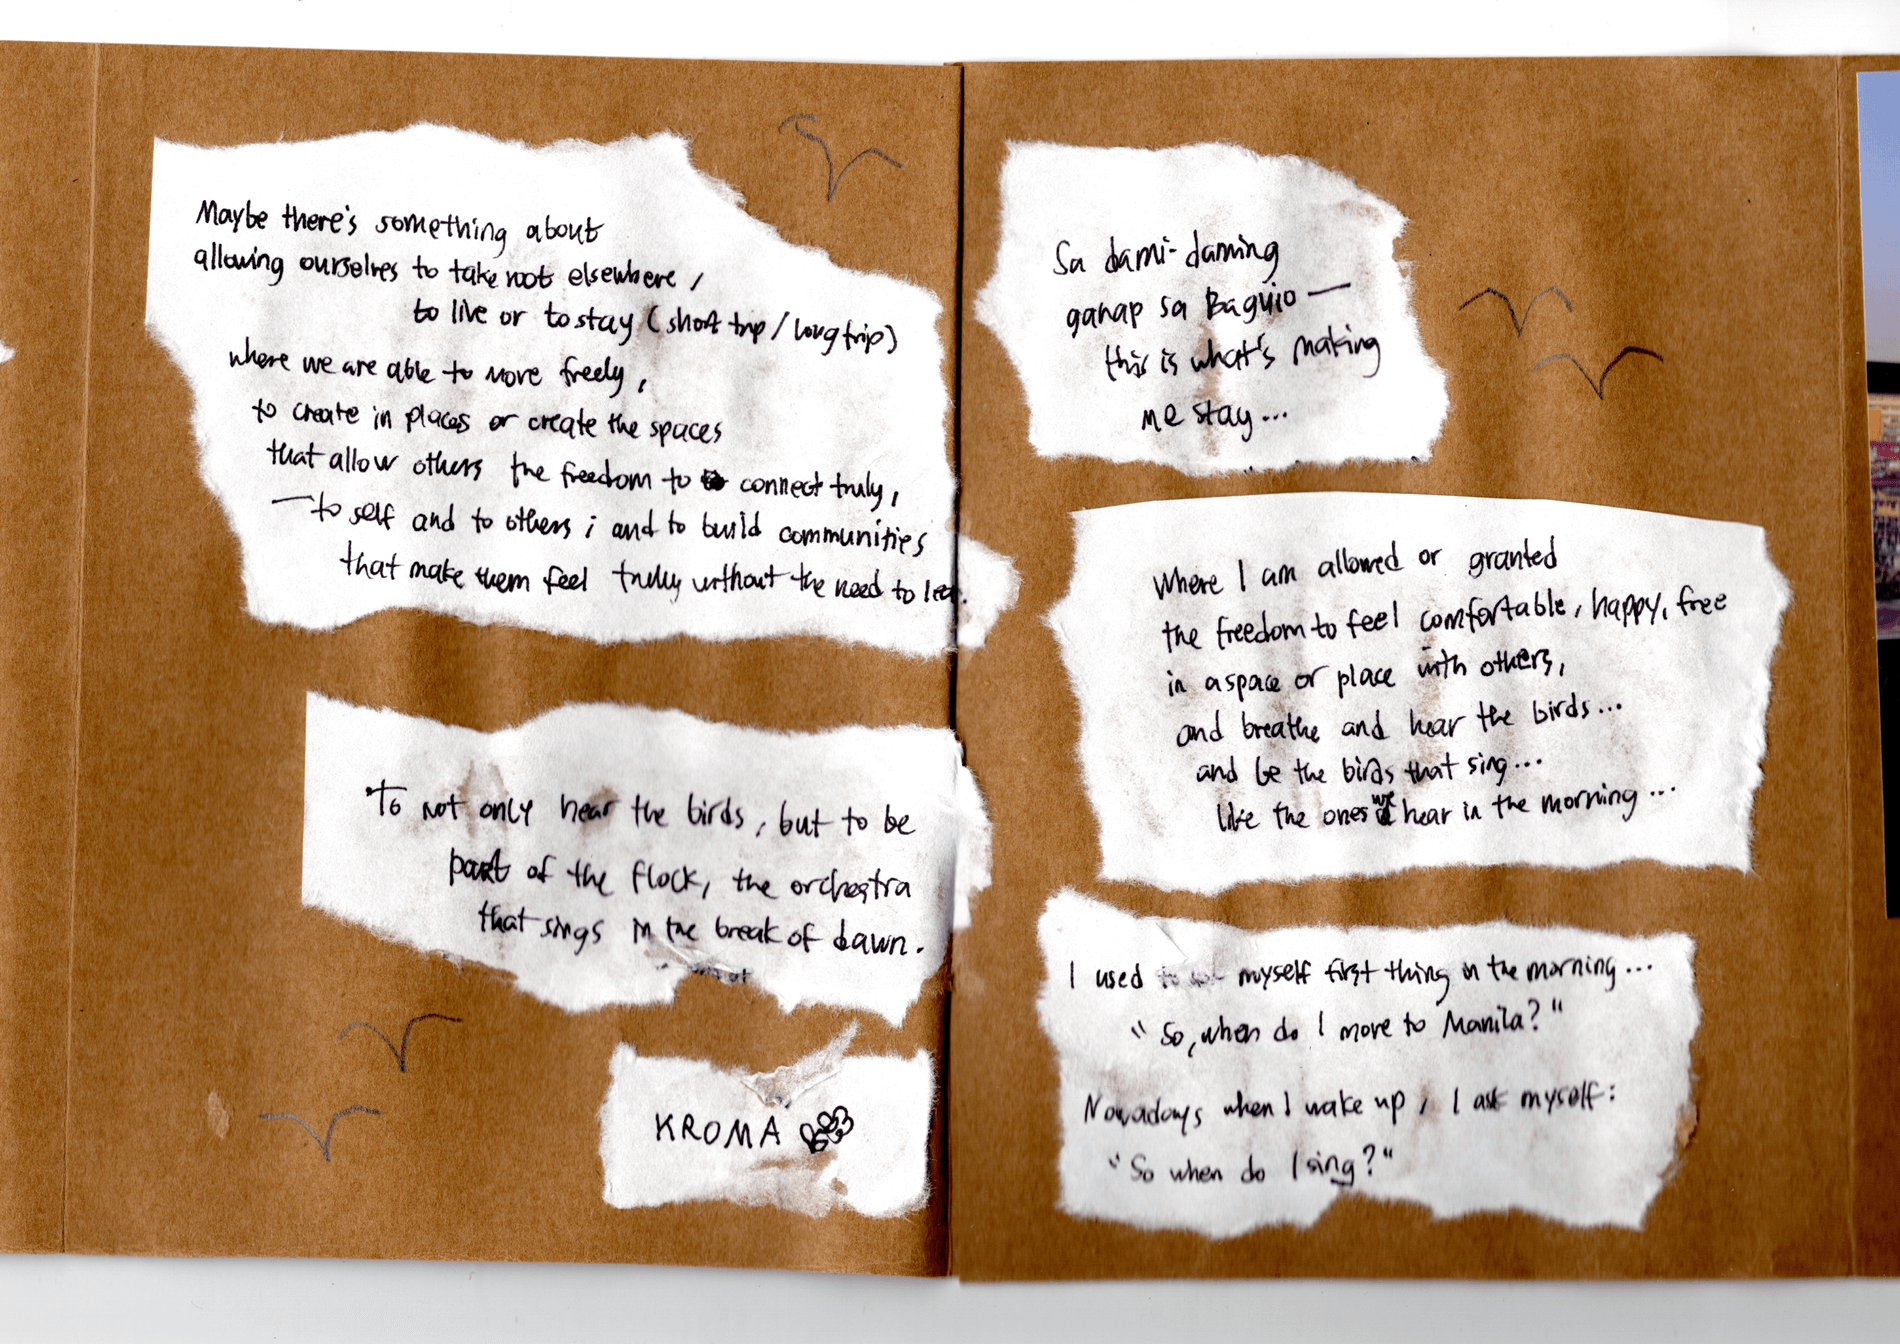 Maybe there's something about
allowing ourselves to take root elsewhere,
to live or to stay (short trip / long trip)
where we are able to move freely,
to create in places or create the spaces
that allow others the freedom to connect truly,
— to self and to others; and to build communities
that make them feel truly without the need to
To not only hear the birds, but to be
part of the flock, the orchestra
that sings in the break of dawn.
KROMA
Sa dami-daming
ganap sa Baguio —
this is what's making
me stay...
Where I am allowed or granted
the freedom to feel comfortable, happy, free
in a space or place with others,
and breathe and hear the birds...
and be the birds that sing...
like the ones we hear in the morning...
I used to ask myself first thing in the morning...
"So, when do I move to Manila?"
Nowadays when I wake up, I ask myself:
"So when do I sing?"